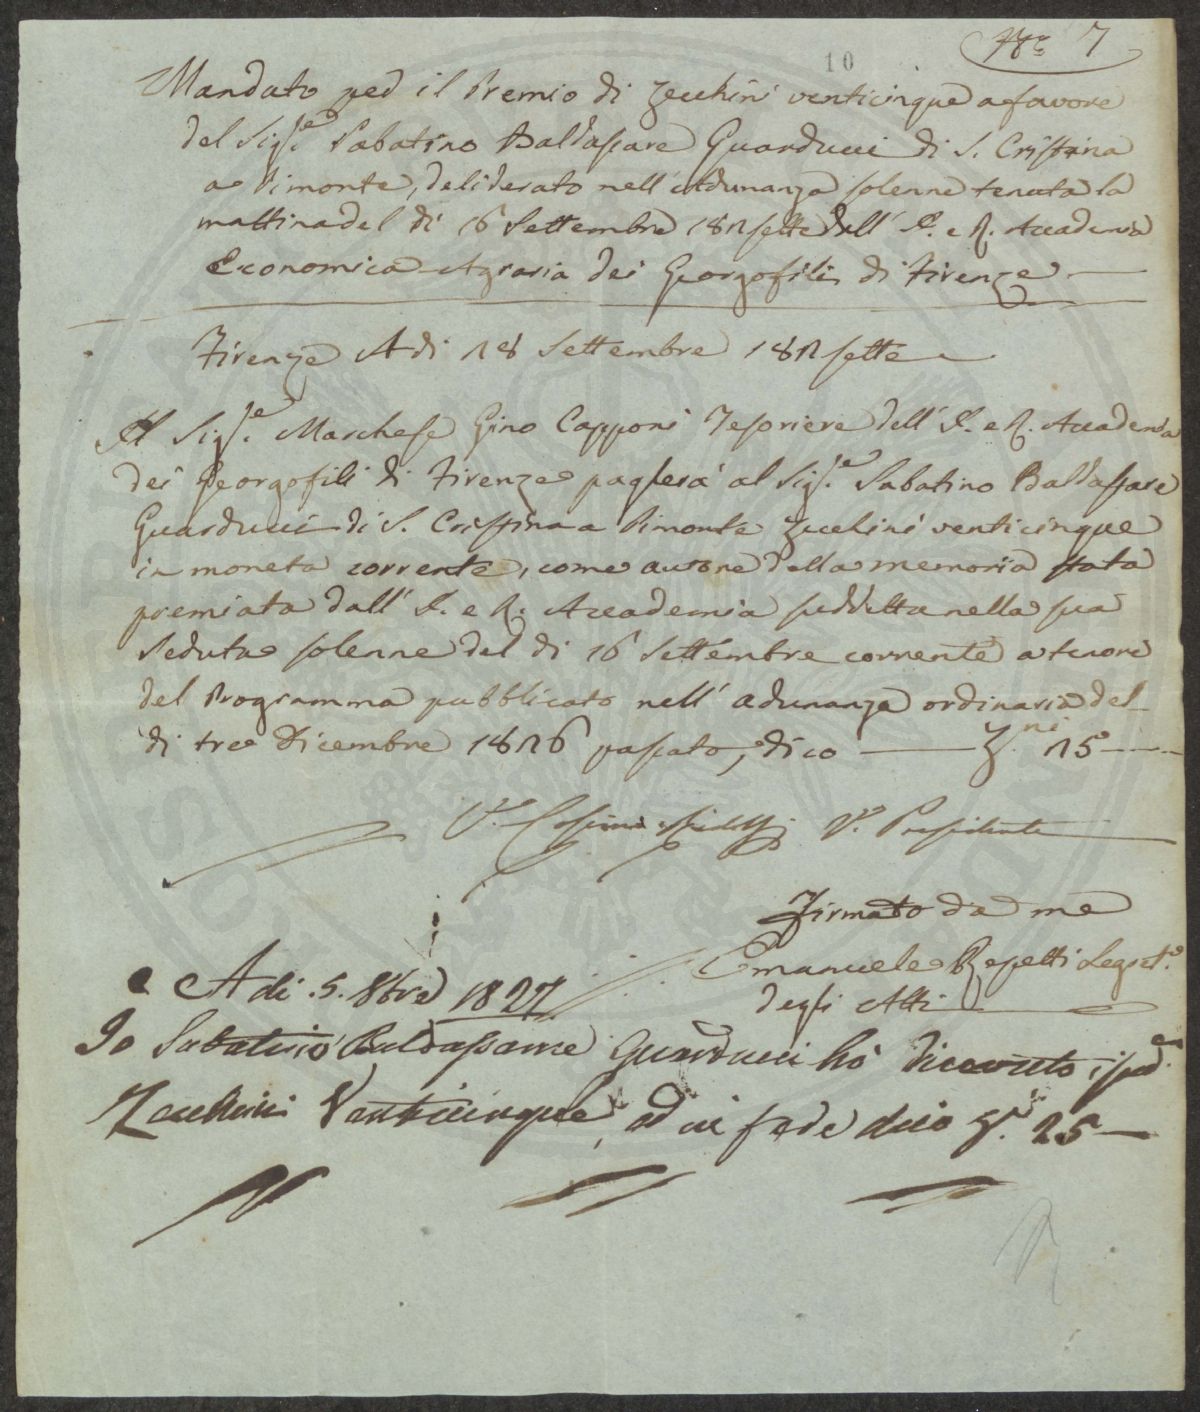 N.º 7
10
Mandato per il Premio di Zecchini venticinque a favore
del Sig.e Sabatino Baldassare Guarducci di S. Cristina
a Pimonte, deliberato nell'Adunanza solenne tenuta la
mattina del dì 16 Settembre 182sette dall'I. e R. Accademia
Economico-Agraria dei Georgofili di Firenze
Firenze A dì 18 Settembre 182sette
Il Sig.e Marchese Gino Capponi Tesoriere dell'I. e R. Accademia
dei Georgofili di Firenze pagherà al Sig.e Sabatino Baldassare
Guarducci di S. Cristina a Pimonte zecchini venticinque
in moneta corrente, come autore della memoria stata
premiata dall'I. e R. Accademia suddetta nella sua
Seduta solenne del dì 16 Settembre corrente a tenore
del Programma pubblicato nell'adunanza ordinaria del
dì tre Dicembre 1826 passato, dico — Z.ni 25 —
V. Cosimo Ridolfi V. Presidente
Firmato da me
Emanuele Repetti Segret.o
degli Atti
A di .5. 8bre 1827
Io Sabatino Baldassarre Guarducci ho ricevuto i sud.
Zecchini Venticinque, ed in fede dico Z.ni 25 —